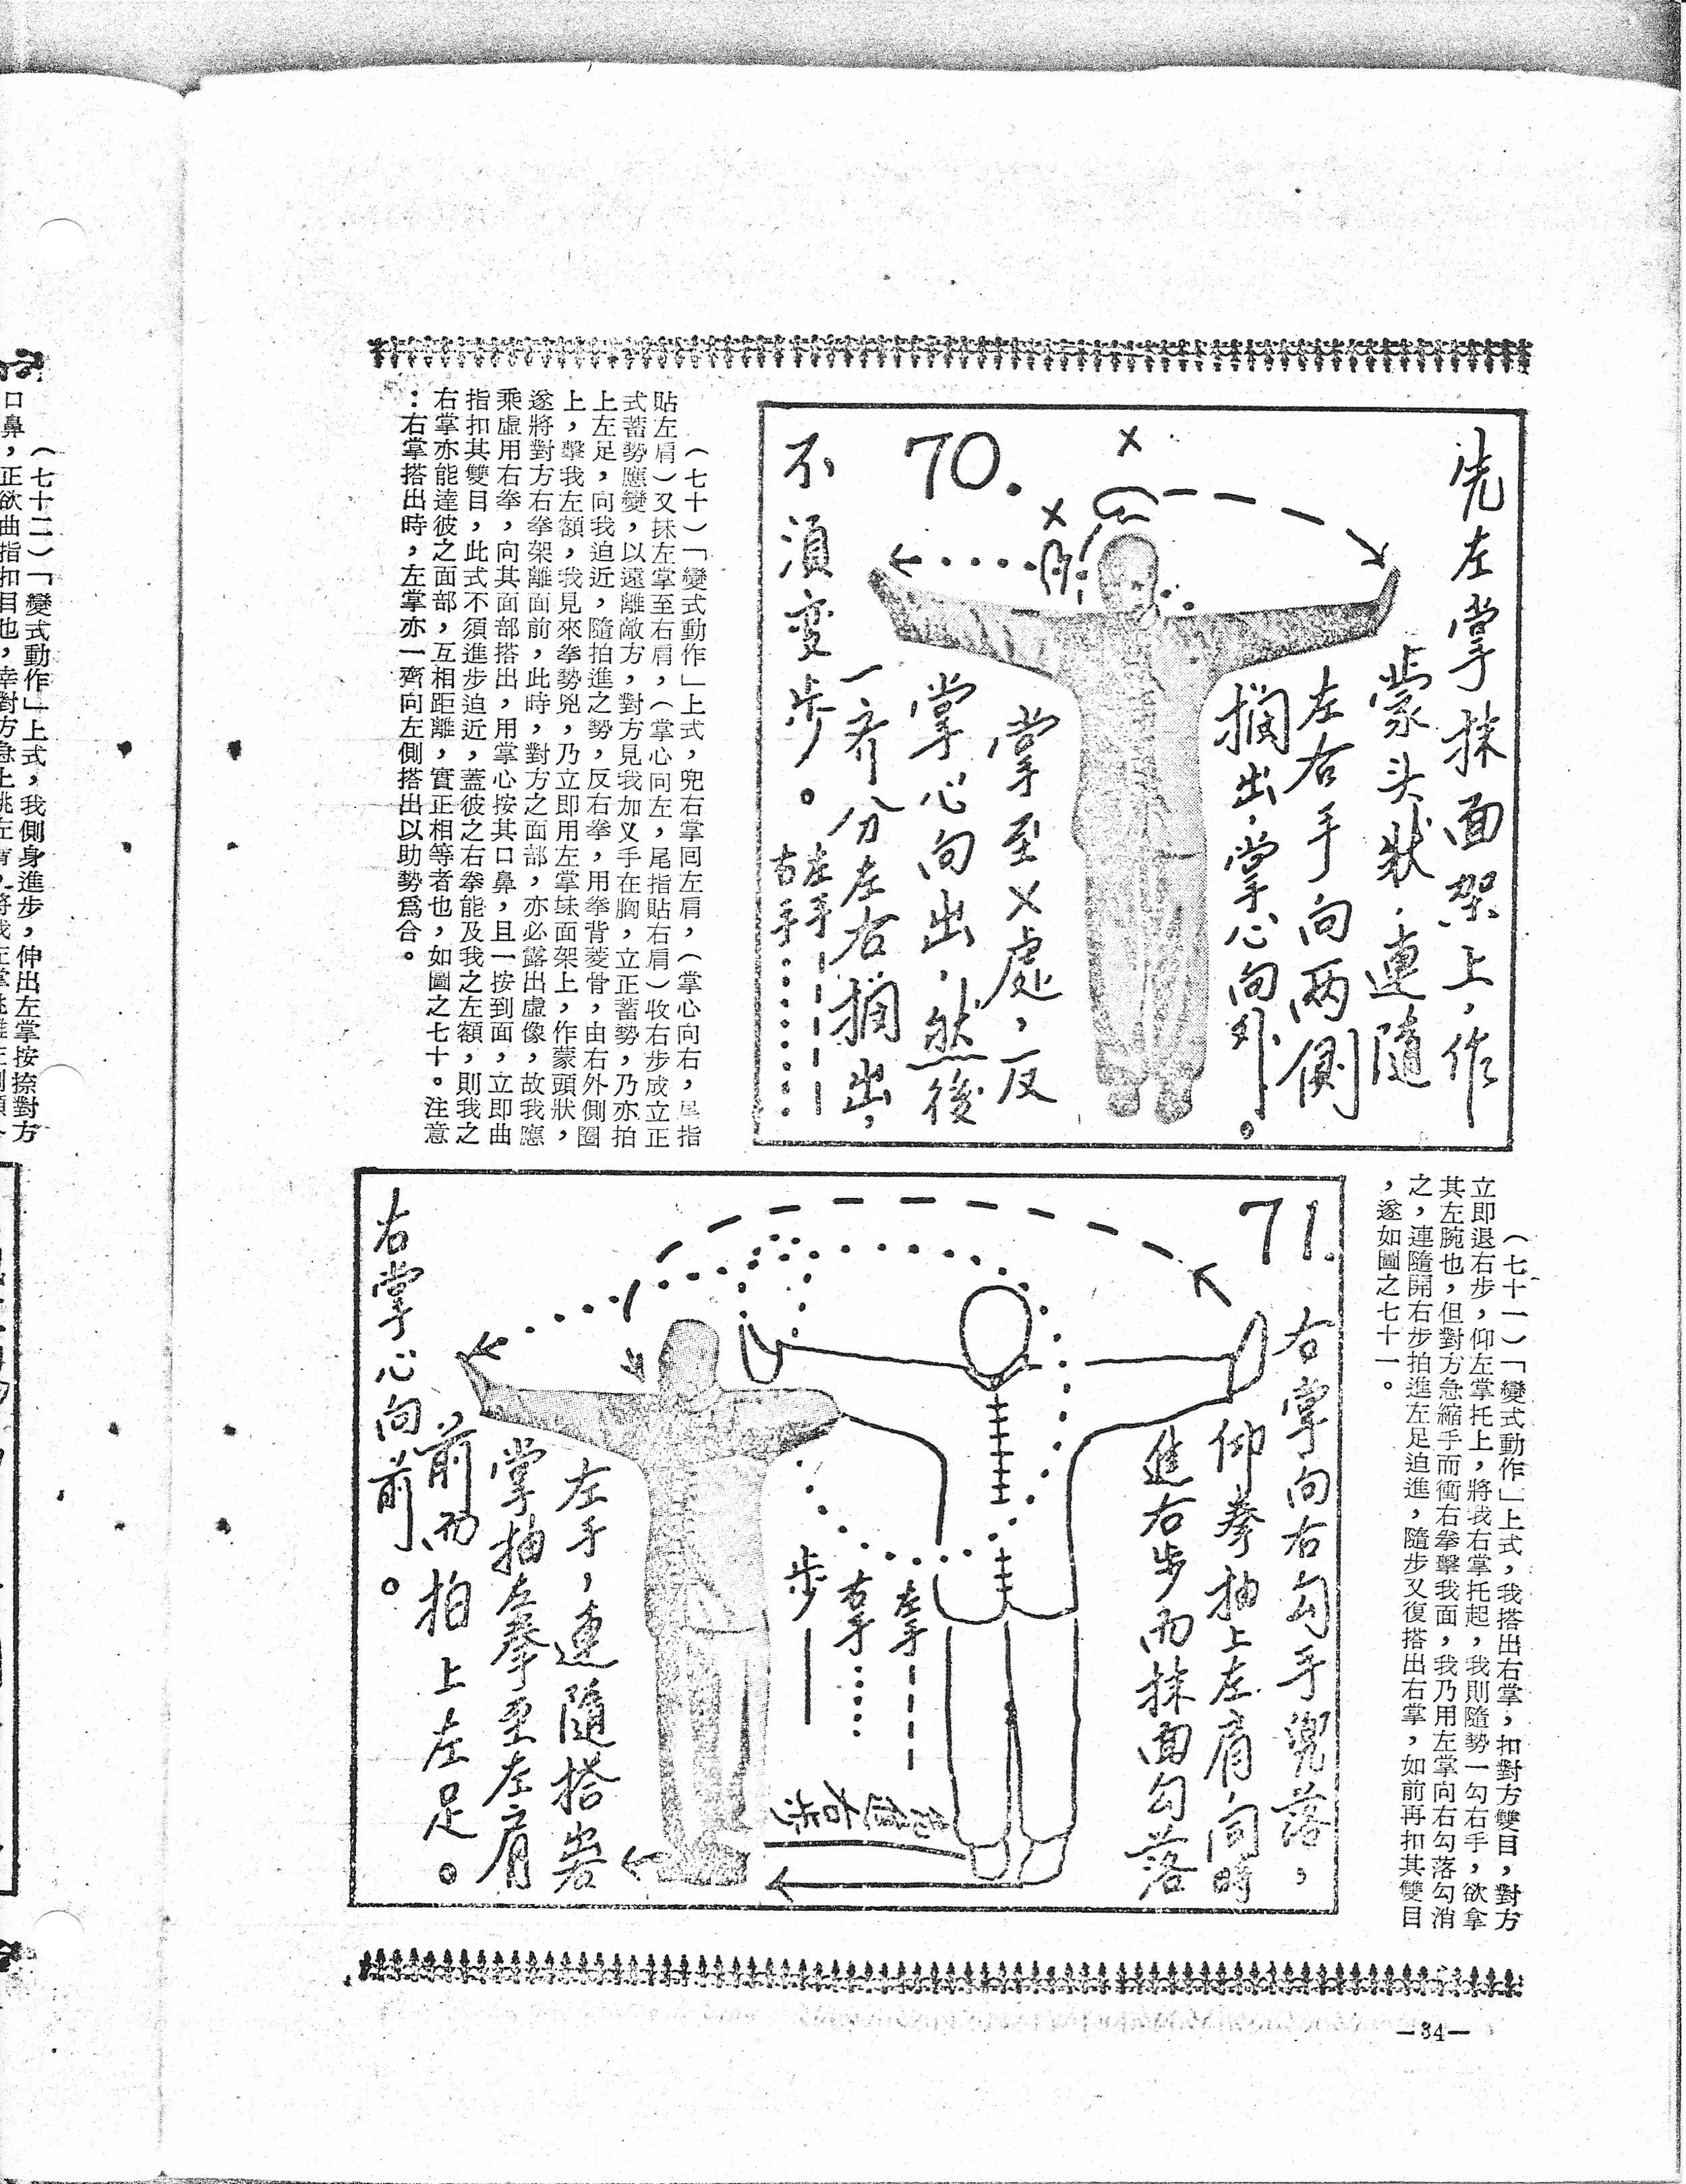 70.
先左掌抹面架上，作
蒙头狀．連隨
左右手向两側
搁出，掌心向外。
掌至乂處，反
掌心向出，然後
一齐分左右搁出，
不須变步。
左手
右手
（七十）「變式動作」上式，兜右掌回左肩，（掌心向右，尾指
貼左肩）又抹左掌至右肩，（掌心向左，尾指貼右肩）收右步成立正
式蓄勢應變，以遠離敵方，對方見我加叉手在胸，立正蓄勢，乃亦拍
上左足，向我迫近，隨拍進之勢，反右拳，用拳背菱骨，由右外側圈
上，擊我左額，我見來拳勢兇，乃立即用左掌抹面架上，作蒙頭狀，
遂將對方右拳架離面前，此時，對方之面部，亦必露出虛像，故我應
乘虛用右拳，向其面部搭出，用掌心按其口鼻，且一按到面，立即曲
指扣其雙目，此式不須進步迫近，蓋彼之右拳能及我之左額，則我之
右掌亦能達彼之面部，互相距離，實正相等者也，如圖之七十。注意
：右掌搭出時，左掌亦一齊向左側搭出以助勢爲合。
（七十一）「變式動作」上式，我搭出右掌，扣對方雙目，對方
立即退右步，仰左掌托上，將我右掌托起，我則隨勢一勾右手，欲拿
其左腕也，但對方急縮手而衝右拳擊我面，我乃用左掌向右勾落勾消
之，連隨開右步拍進左足迫進，隨步又復搭出右掌，如前再扣其雙目
，遂如圖之七十一。
71.
右掌向右勾手兜落，
仰拳抽上左肩同時
進右步而抹面勾落
左手，連隨搭出右
掌抽左拳至左肩
前而拍上左足。
右掌心向前。
左手
右手
步
（七十二）「變式動作」上式，我側身進步，伸出左掌按捺對方
—34—